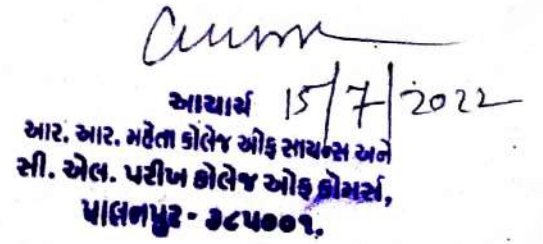 આચાર્ય 15/7/2022
આર. આર. મહેતા કોલેજ ઓફ સાયન્સ અને
સી. એલ. પરીખ કોલેજ ઓફ કોમર્સ,
પાલનપુર - ૩૮૫૦૦૧.